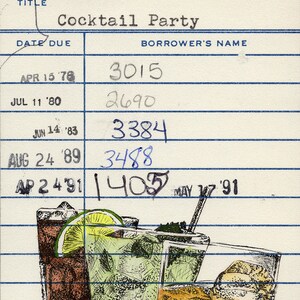 TITLE
Cocktail Party
DATE DUE BORROWER'S NAME
APR 15 78 3015
JUL 11 '80 2690
JUN 14 '83 3384
AUG 24 '89 3488
AP 24 '91 1405 MAY 17 '91